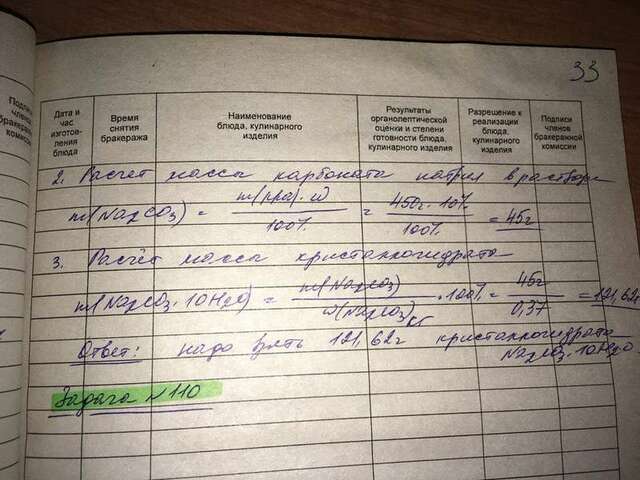 33
Подписи членов бракеражной комиссии
Дата и час изготов- ления блюда
Время снятия бракеража
Наименование блюда, кулинарного изделия
Результаты органолептической оценки и степени готовности блюда, кулинарного изделия
Разрешение к реализации блюда, кулинарного изделия
Подписи членов бракеражной комиссии
2. Расчет массы карбоната натрия в растворе
m(Na2CO3) = m(р-ра)·w / 100% = 450г·10% / 100% = 45г
3. Расчёт массы кристаллогидрата
m(Na2CO3·10H2O) = m(Na2CO3) / w(Na2CO3)кг ·100% = 45г / 0,37 = 121,62г
Ответ: надо взять 121,62г кристаллогидрата
Na2CO3·10H2O
Задача №110